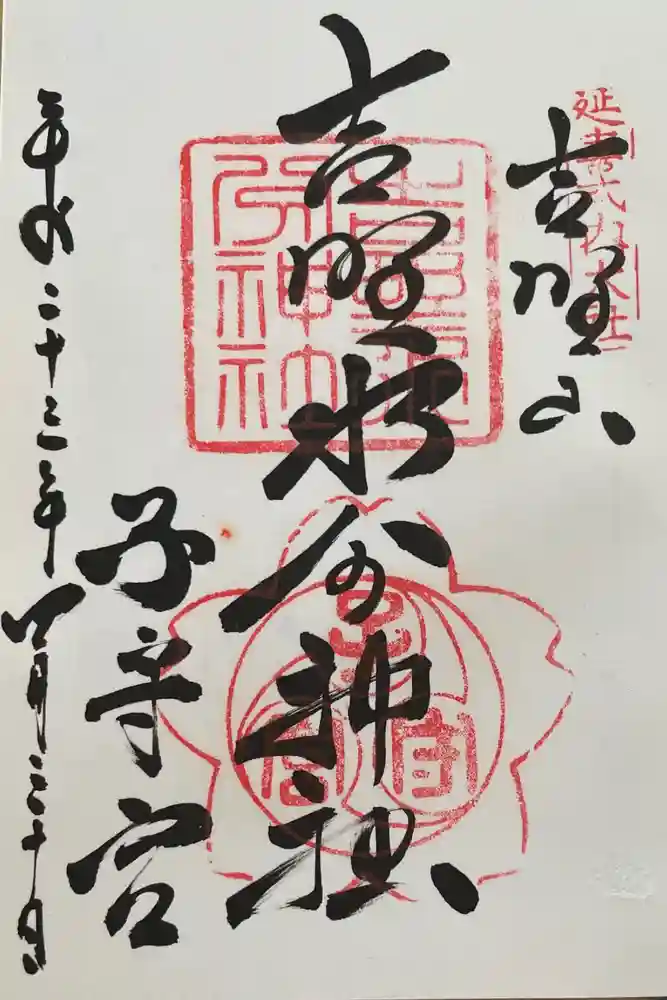 延喜式内大社
吉野山
吉野水分神社
子守宮
平成二十三年四月二十日
吉野水分神社
子守宮